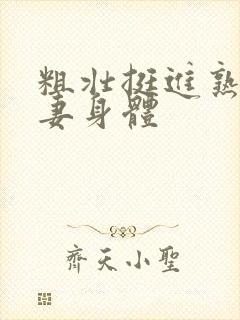 粗壯挺進熟
妻身體
齊天小聖